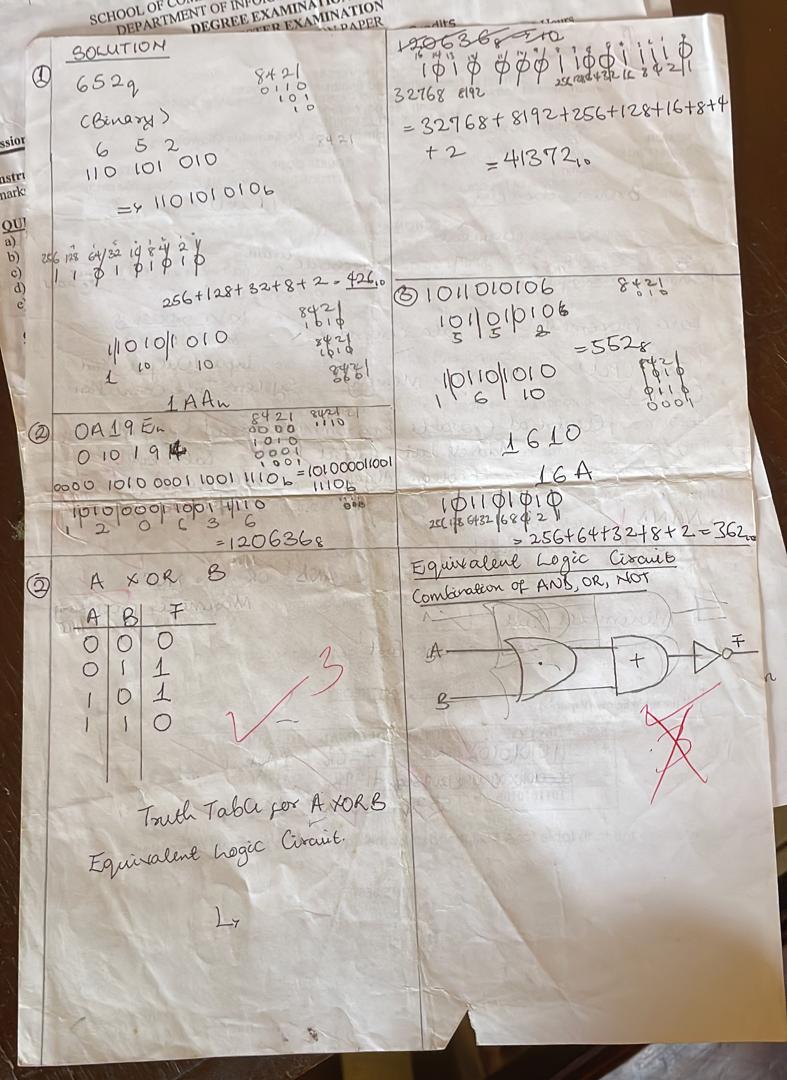 SCHOOL OF
DEPARTMENT OF INFO
DEGREE EXAMINATION
EXAMINATION
PAPER
QU
a)
b)
c)
d)
SOLUTION
① 652q
8421
0110
101
10
(Binary)
6 5 2
110 101 010
=> 110101010b
256 128 64 32 16 8 4 2 1
1 1 0 1 0 1 0 1 0
256+128+32+8+2=426₁₀
8421
1010
1|1010|1010
8421
1010
1 10 10
8421
0001
1AAн
② 0A19Eн
8421 8421
0000 1110
0 10 1 9 14
1010
0001
1001
0000 1010 0001 1001 1110b = 101000011001
1110b
1|010|000|110|011|110
1 2 0 6 3 6
=120636₈
120636₈ => 10
1010 0001 1001 1110
256 128 64 32 16 8 4 2 1
32768 8192
=32768+8192+256+128+16+8+4
+2 =41372₁₀
③ 101101010b
8421
010
101|101|010b
5 5 2
=552₈
1|0110|1010
8421
1010
0110
0001
1 6 10
1 6 10
16A
101101010
256 128 64 32 16 8 4 2 1
=256+64+32+8+2=362₁₀
② A XOR B
A B F
0 0 0
0 1 1
1 0 1
1 1 0
3
Truth Table for A XOR B
Equivalent Logic Circuit.
Equivalent Logic Circuit
Combination of AND, OR, NOT
A
B
·
+
F